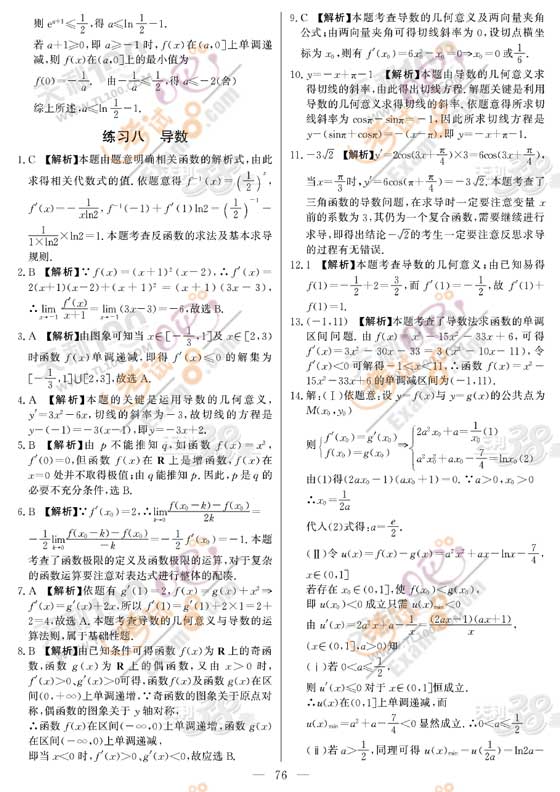 则 eᵃ⁺¹≤1/2,得 a≤ln 1/2-1.
若 a+1≥0,即 a≥-1 时,f(x)在(a,0]上单调递
减,则 f(x)在(a,0]上的最小值为
f(0)=-1/a. 由-1/a≤1/2,得 a≤-2(舍)
综上所述,a≤ln 1/2-1.
练习八 导数
1. C 【解析】本题由题意明确相关函数的解析式,由此
求得相关代数式的值. 依题意得 f⁻¹(x)=(1/2)ˣ,
f′(x)=-1/xln2,f⁻¹(-1)+f′(1)ln2=(1/2)⁻¹-
1/1×ln2×ln2=1. 本题考查反函数的求法及基本求导
规则.
2. B 【解析】∵f(x)=(x+1)²(x-2),∴f′(x)=
2(x+1)(x-2)+(x+1)²=(x+1)(3x-3),
∴lim x→-1 f′(x)/x+1=lim x→-1 (3x-3)=-6,故选 B.
3. A 【解析】由图象可知当 x∈[-1/3,1]及 x∈[2,3)
时函数 f(x)单调递减,即得 f′(x)≤0 的解集为
[-1/3,1]∪[2,3],故选 A.
4. A 【解析】本题的关键是运用导数的几何意义,
y′=3x²-6x,切线的斜率为-3,故切线的方程是
y-(-1)=-3(x-1),即 y=-3x+2.
5. B 【解析】由 p 不能推知 q,如函数 f(x)=x³,
f′(0)=0,但函数 f(x)在 R 上是增函数,f(x)在
x=0 处并不取得极值;由 q 能推知 p. 因此,p 是 q 的
必要不充分条件,选 B.
6. B 【解析】∵f′(x₀)=2,∴lim k→0 f(x₀-k)-f(x₀)/2k=
-1/2 lim k→0 f(x₀-k)-f(x₀)/-k=-1/2 f′(x₀)=-1. 本题
考查了函数极限的定义及函数极限的运算,对于复杂
的函数运算要注意对表达式进行整体的配凑.
7. A 【解析】依题有 g′(1)=2,f(x)=g(x)+x²⇒
f′(x)=g′(x)+2x,所以 f′(1)=g′(1)+2×1=2+
2=4,故选 A. 本题考查导数的几何意义与导数的运
算法则,属于基础性题.
8. B 【解析】由已知条件可得函数 f(x)为 R 上的奇函
数,函数 g(x)为 R 上的偶函数,又由 x>0 时,
f′(x)>0、g′(x)>0可得,函数 f(x)及函数 g(x)在区
间(0,+∞)上单调递增,∵奇函数的图象关于原点对
称,偶函数的图象关于 y 轴对称,
∴函数 f(x)在区间(-∞,0)上单调递增,函数 g(x)
在区间(-∞,0)上单调递减,
即当 x<0 时,f′(x)>0、g′(x)<0,故应选 B.
9. C 【解析】本题考查导数的几何意义及两向量夹角
公式;由两向量夹角可得切线斜率为 0,设切点横坐
标为 x₀,则有 f′(x₀)=6x₀²-x₀=0⇒x₀=0 或1/6.
10. y=-x+π-1 【解析】本题由导数的几何意义求
得切线的斜率,由此得出切线方程. 解题关键是利用
导数的几何意义求得切线的斜率. 依题意得所求切
线斜率为 cosπ-sinπ=-1,因此所求切线方程是
y-(sinπ+cosπ)=-(x-π),即 y=-x+π-1.
11. -3√2 【解析】y′=2cos(3x+π/4)×3=6cos(3x+π/4),
当x=π/3时,y′=6cos(π+π/4)=-3√2. 本题考查了
三角函数的导数问题,在求导时一定要注意变量 x
前的系数为 3,其仍为一个复合函数,需要继续进行
求导,即得出结论-√2的考生一定要注意反思求导
的过程有无错误.
12. 1 【解析】本题考查导数的几何意义;由已知易得
f(1)=-1/2+2=3/2,而 f′(1)=-1/2,故 f′(1)+
f(1)=1.
13. (-1,11) 【解析】本题考查了导数法求函数的单调
区间问题. 由 f(x)=x³-15x²-33x+6,可得
f′(x)=3x²-30x-33=3(x²-10x-11),令
f′(x)<0可解得-1<x<11,∴函数 f(x)=x³-
15x²-33x+6 的单调减区间为(-1,11).
14. 解:(Ⅰ)依题意,设 y=f(x)与 y=g(x)的公共点为
M(x₀,y₀)
则{f′(x₀)=g′(x₀) f(x₀)=g(x₀) ⇒{2a²x₀+a=1/x₀(1) a²x₀²+ax₀-7/4=lnx₀(2)
由(1)得(2ax₀-1)(ax₀+1)=0. ∵a>0,x₀>0
∴x₀=1/2a
代入(2)式得:a=e/2.
(Ⅱ)令 u(x)=f(x)-g(x)=a²x²+ax-lnx-7/4,
x∈(0,1]
若存在 x₀∈(0,1],使 f(x₀)<g(x₀),
即 u(x₀)<0 成立只需 u(x)min<0
由 u′(x)=2a²x+a-1/x=(2ax-1)(ax+1)/x,
(x∈(0,1],a>0)知
(ⅰ)若 0<a≤1/2,
则 u′(x)≤0 对于 x∈(0,1]恒成立.
∴u(x)在(0,1]上单调递减,而
u(x)min=a²+a-7/4<0 显然成立. ∴0<a≤1/2
(ⅱ)若 a>1/2,同理可得 u(x)min=u(1/2a)=ln2a-
— 76 —